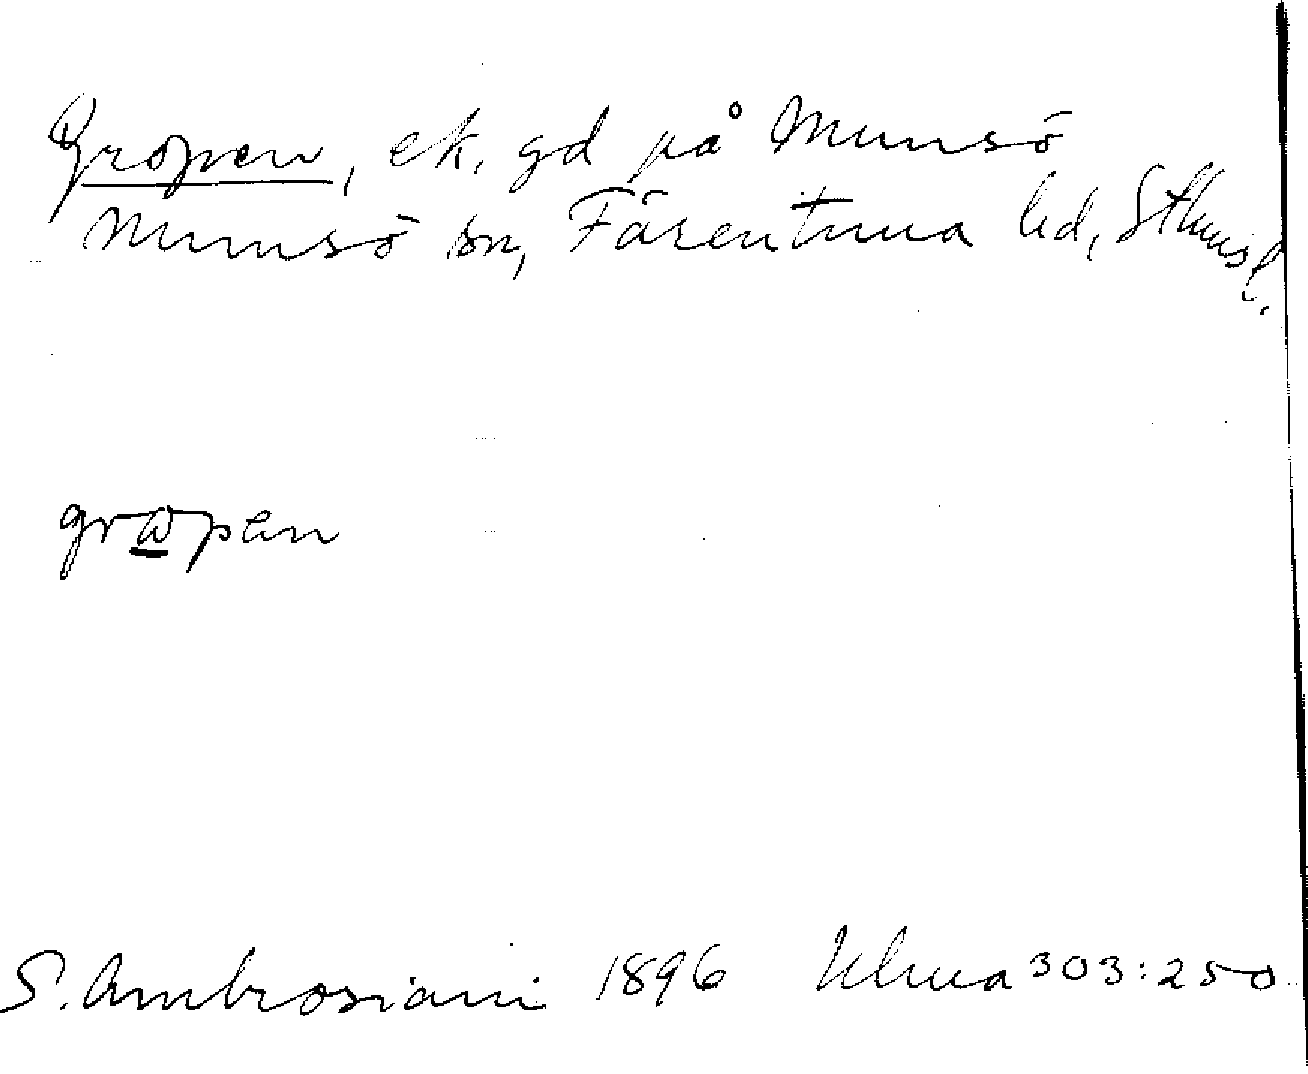 Gropen, ek. gd på Munsö
Munsö sn, Färentuna hd, Sthmsl.
gropen
S. Ambrosiani 1896 Ulma 303:250